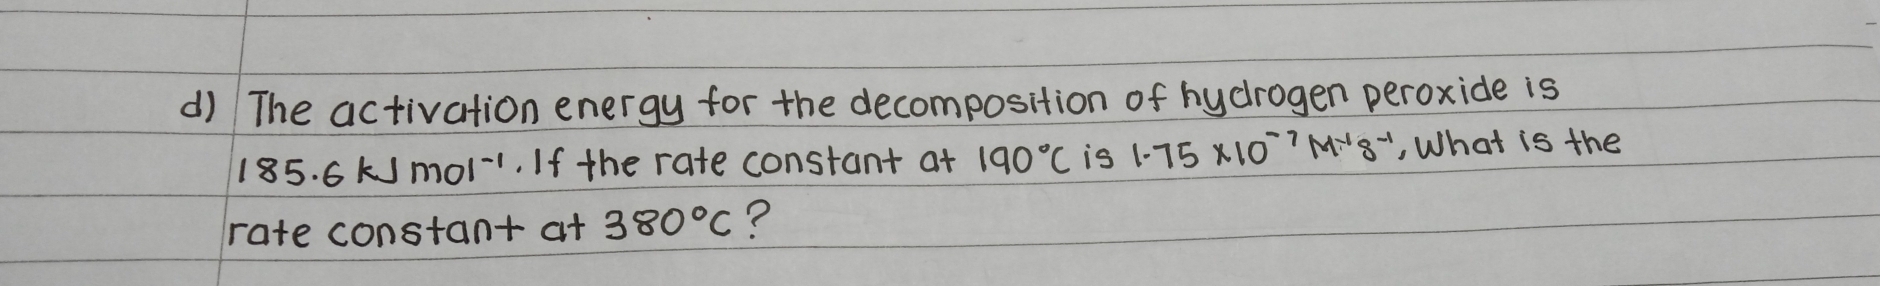 d) The activation energy for the decomposition of hydrogen peroxide is
185.6 kJ mol⁻¹. If the rate constant at 190°C is 1.75 x10⁻⁷ M⁻¹s⁻¹, What is the
rate constant at 380°C?